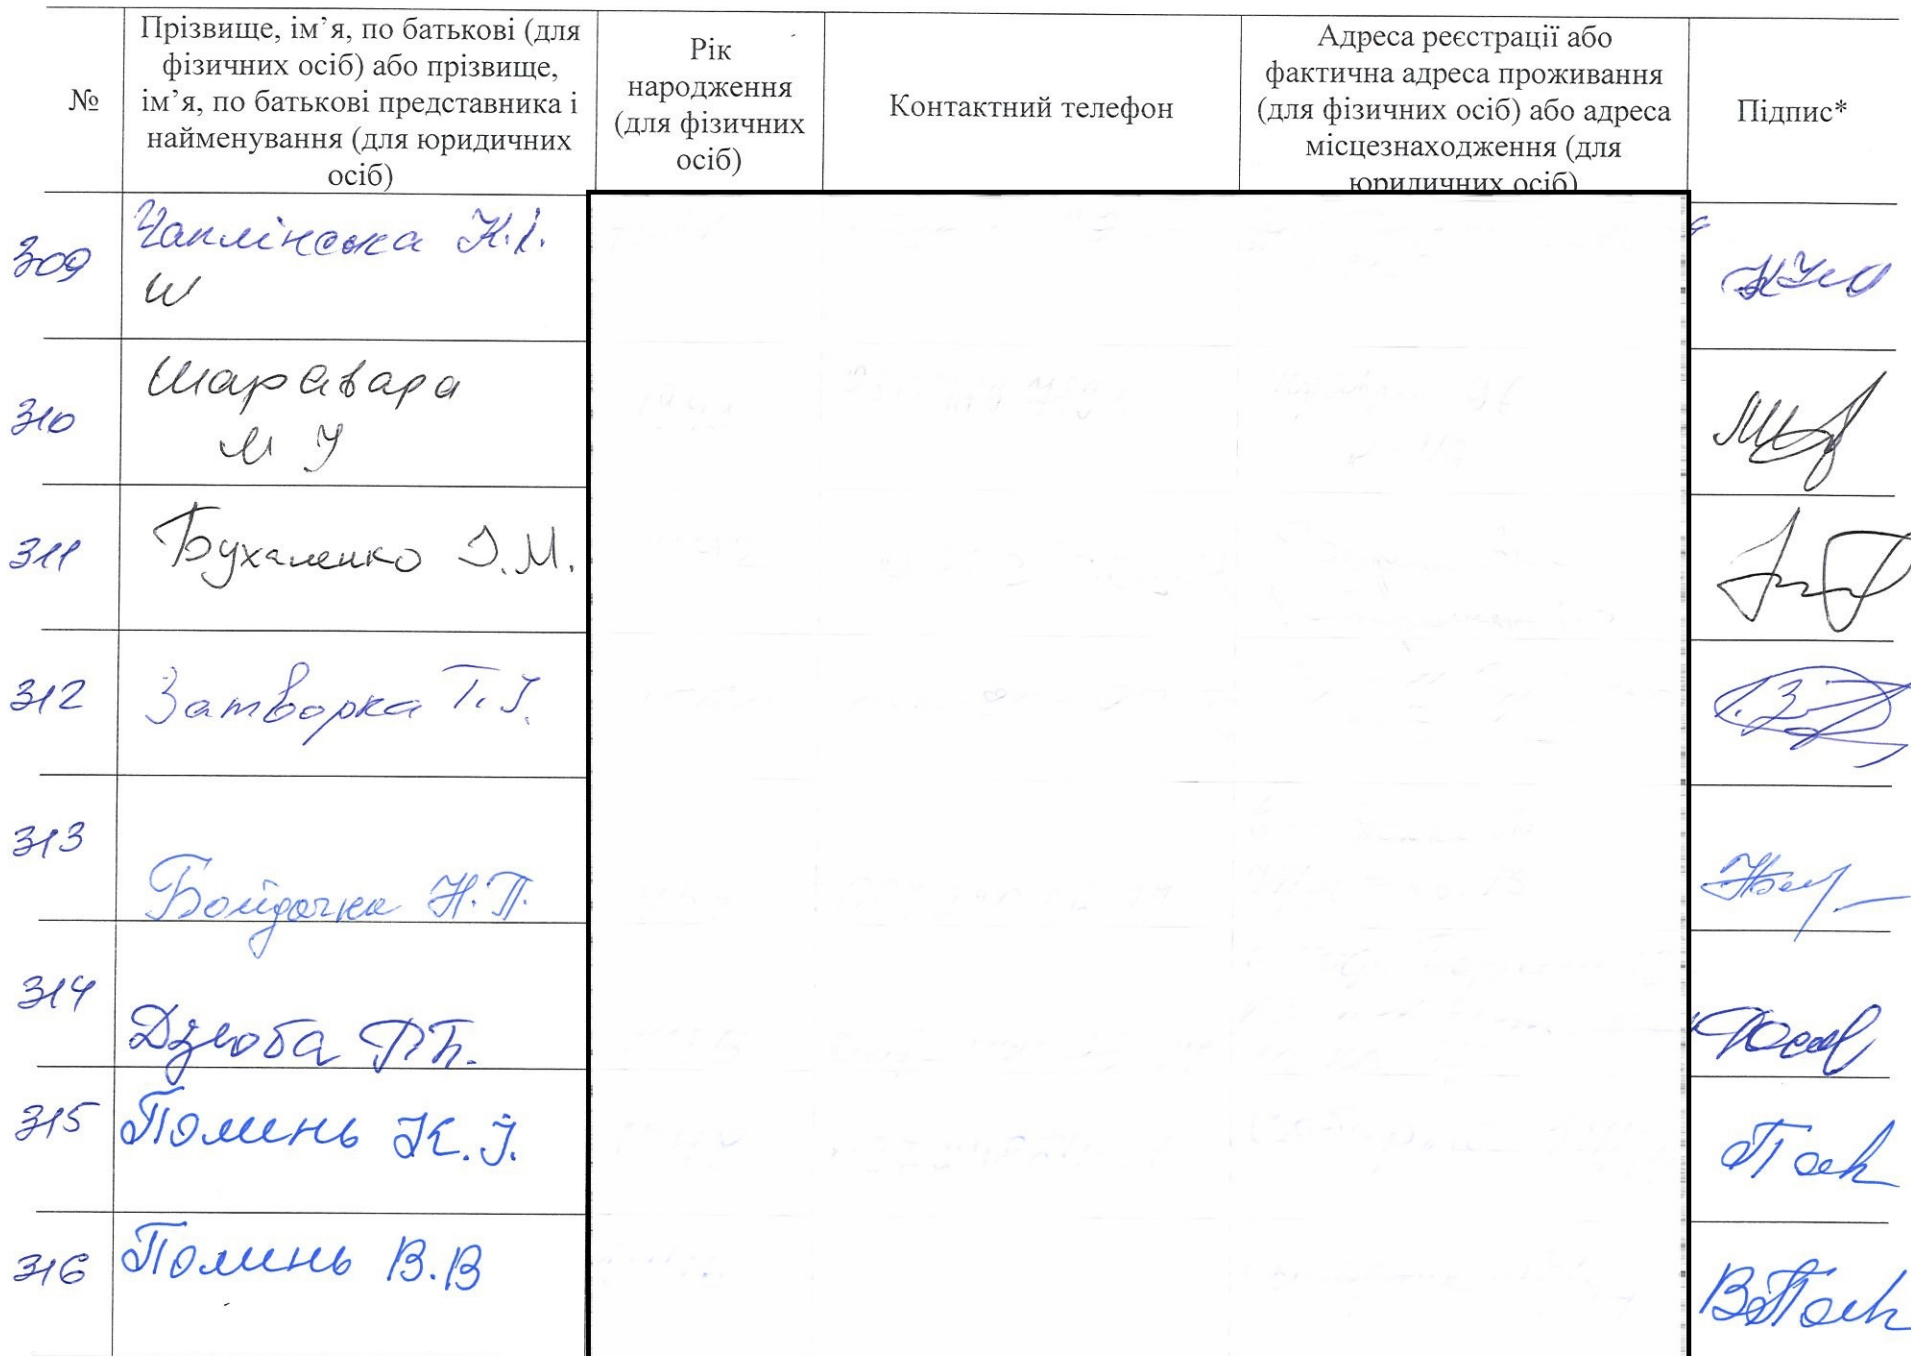 №
Прізвище, ім’я, по батькові (для
фізичних осіб) або прізвище,
ім’я, по батькові представника і
найменування (для юридичних
осіб)
Рік
народження
(для фізичних
осіб)
Контактний телефон
Адреса реєстрації або
фактична адреса проживання
(для фізичних осіб) або адреса
місцезнаходження (для
юридичних осіб)
Підпис*
309
Чаплінська К.І.
Ш
310
Шаравара
М У
311
Бухаленко І.М.
312
Затворка Т.І.
313
Бойдачка Н.П.
314
Дзюба Р.П.
315
Поминь К.І.
316
Поминь В.В